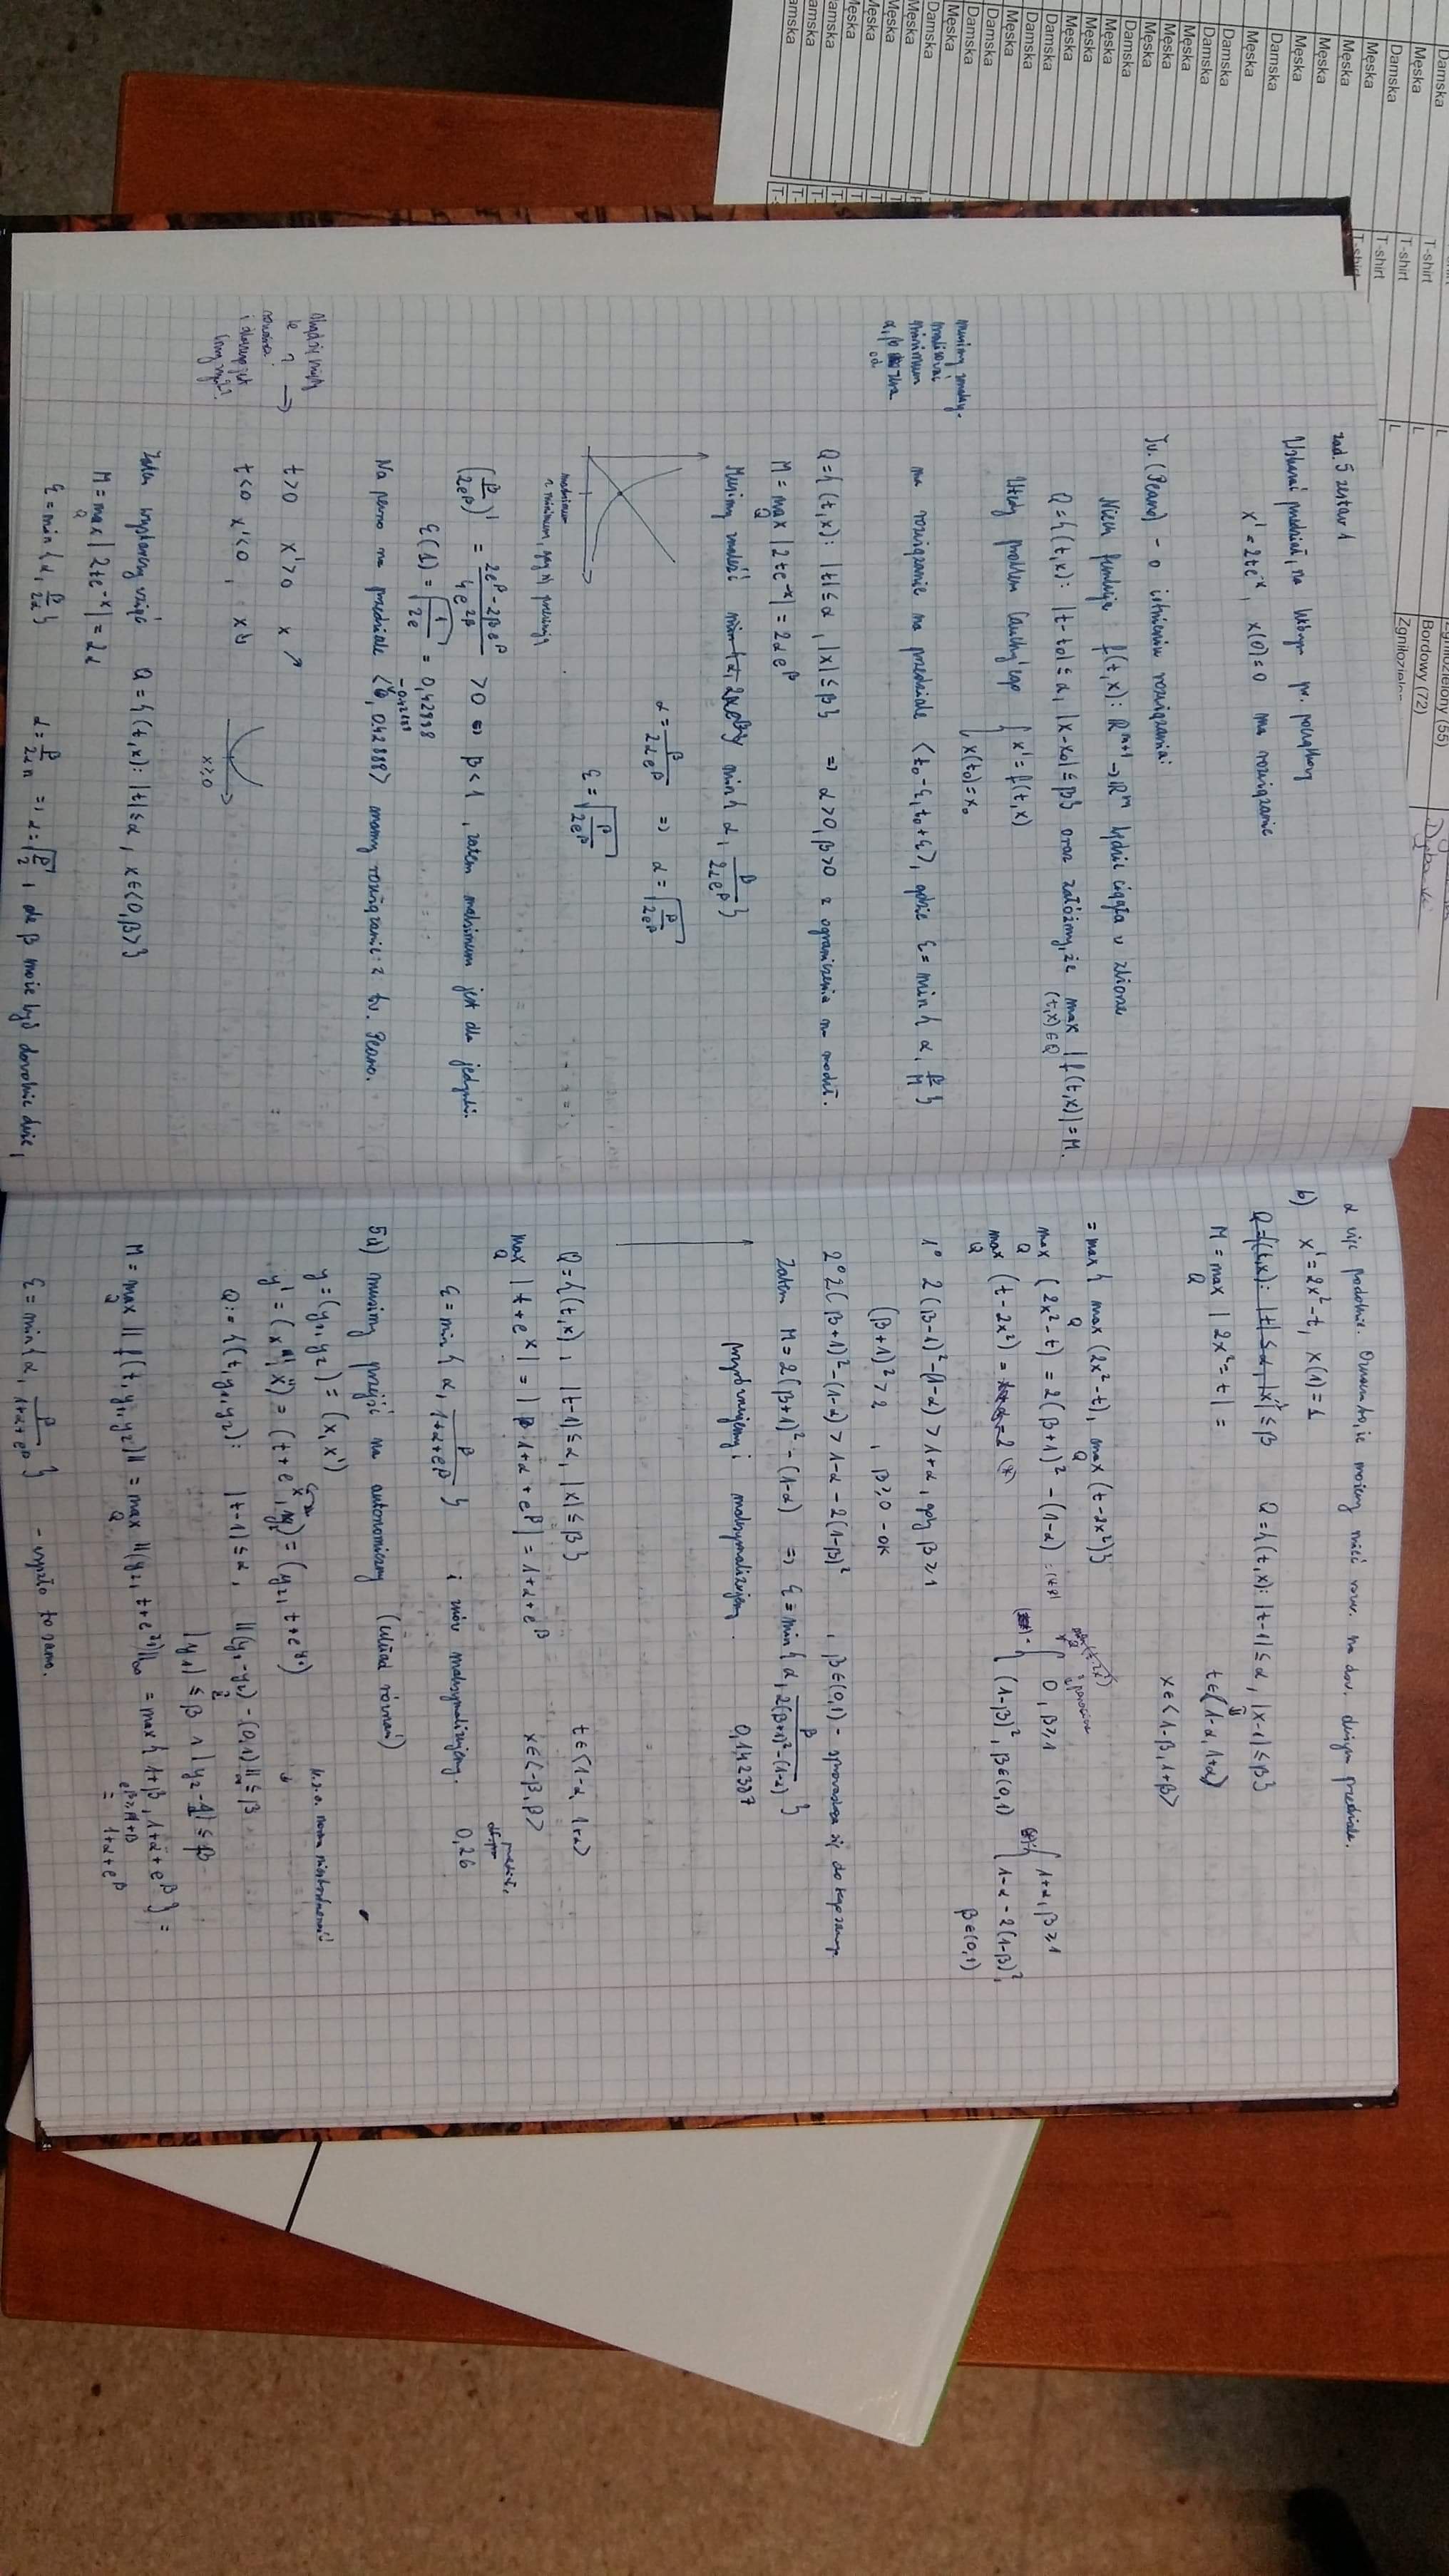 Damska
T-shirt
L
Zgniłozielony (55)
Męska
T-shirt
L
Bordowy (72)
Damska
T-shirt
L
Męska
T-shirt
Męska
Męska
Męska
Damska
Męska
Damska
Damska
Męska
Męska
Męska
Damska
Męska
Męska
Męska
Damska
Damska
Męska
Damska
Damska
Męska
Damska
Męska
Męska
zad. 5 zestaw 1
Wskazać przedział, na którym pr. początkowy
x' = 2te^{-x}, x(0)=0 ma rozwiązanie
Tw. (Peano) - o istnieniu rozwiązania:
Niech funkcja f(t,x): ℝ^{m+1} → ℝ^m będzie ciągła w zbiorze
Q={(t,x): |t-t₀| ≤ α, |x-x₀| ≤ β} oraz załóżmy, że max |f(t,x)| = M.
(t,x)∈Q
Wtedy problem Cauchy'ego { x' = f(t,x)
x(t₀)=x₀
ma rozwiązanie na przedziale <t₀-ε, t₀+ε>, gdzie ε = min{ α, β/M }
musimy zmaksy-
malizować
minimum
Q={(t,x): |t| ≤ α, |x| ≤ β} => α>0, β>0 z ograniczenia na moduł.
M = max_Q |2te^{-x}| = 2αe^β
Musimy znaleźć min{ α, β/(2αe^β) }
α = β/(2αe^β) => α = √(β/(2e^β))
ε = √(β/(2e^β))
maksimum
z minimum, gdy się przecinają
(β/(2e^β))' = (2e^β - 2βe^β)/(4e^{2β}) > 0 <=> β < 1, zatem maksimum jest dla jedynki.
ε(1) = √(1/(2e)) = 0,42888
-0.42888
Na pewno na przedziale < , 0.42888> mamy rozwiązanie z tw. Peano.
t>0 x'>0 x ↗
t<0 x'<0, x ↘
x≥0
Zatem wystarczy wziąć Q={(t,x): |t| ≤ α, x∈<0,β>}
M = max_Q |2te^{-x}| = 2α
ε = min{α, β/(2α)} α = β/(2α) => α = √(β/2), ale β może być dowolnie duże,
α więc podobnie. Oznacza to, że możemy mieć rozw. na dow. dużym przedziale.
b) x' = 2x²-t, x(1)=1
Q={(t,x): |t| ≤ α, |x| ≤ β Q={(t,x): |t-1| ≤ α, |x-1| ≤ β}
M = max_Q |2x²-t| = t∈<1-α, 1+α>
x∈<1-β, 1+β>
= max{ max_Q (2x²-t), max_Q (t-2x²)}
max_Q (2x²-t) = 2(β+1)² - (1-α)
0, β≥1
1+α, β≥1
max_Q (t-2x²) = (*)
(1-β)², β∈(0,1)
1-α-2(1-β)²,
β∈(0,1)
1° 2(β-1)²-(1-α) > 1+α, gdy β≥1
(β+1)² > 2, β≥0 - OK
2° 2(β+1)²-(1-α) > 1-α-2(1-β)², β∈(0,1) - sprowadza się do tego samego
Zatem M = 2(β+1)² - (1-α) => ε = min{ α, β/(2(β+1)²-(1-α)) }
przyrównujemy i maksymalizujemy. 0,142387
Q={(t,x), |t-1| ≤ α, |x| ≤ β} t∈<1-α, 1+α>
max_Q |t+e^x| = |1+α+e^β| = 1+α+e^β x∈<-β,β>
ε = min{ α, β/(1+α+e^β) } i znów maksymalizujemy. 0,26
5d) musimy przejść na autonomiczny (układ równań)
y=(y₁,y₂) = (x,x')
y' = (x', x'') = (t+e^x, y₂) = (y₂, t+e^{y₁})
Q:={(t,y₁,y₂): |t-1| ≤ α, ||(y₁-y₂)-(0,1)||_∞ ≤ β
|y₁| ≤ β ∧ |y₂-1| ≤ β
M = max_Q ||f(t,y₁,y₂)|| = max_Q ||(y₂, t+e^{y₁})||_∞ = max{1+β, 1+α+e^β} =
e^β ≥ 1+β
= 1+α+e^β
ε = min{α, β/(1+α+e^β)} - wyszło to samo.